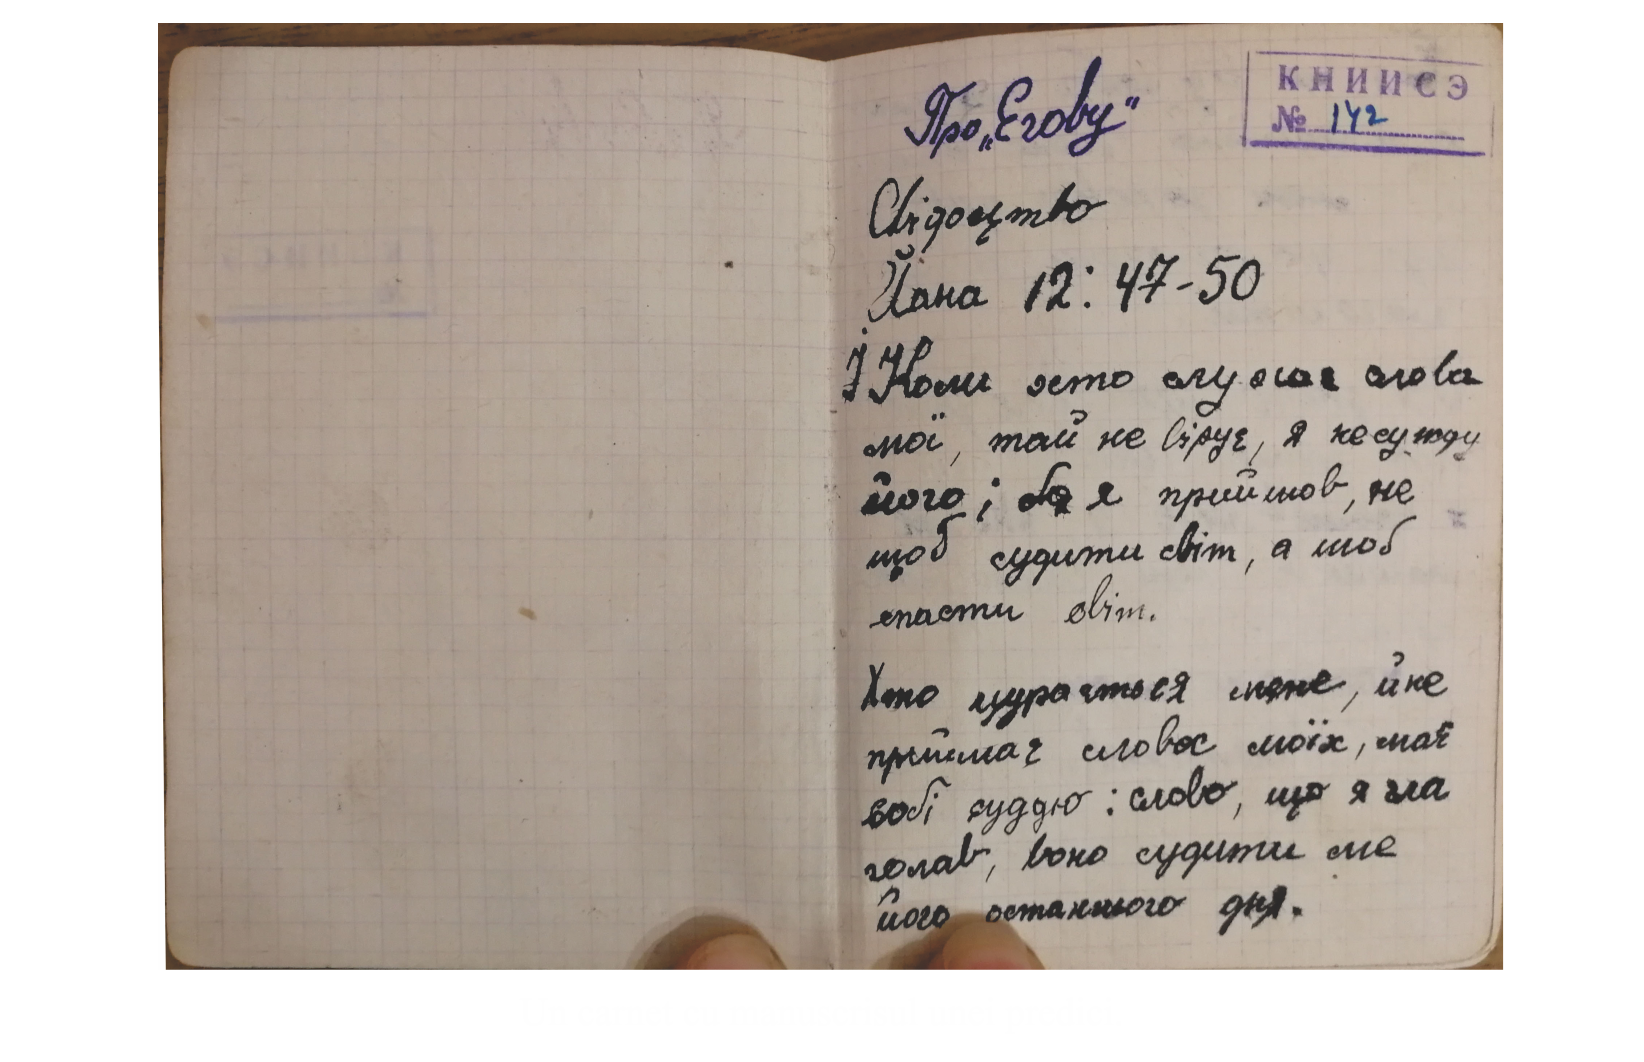 Про „Єгову"
КНИИСЭ
№ 142
Свідоцтво
Йана 12:47-50
І Коли хто слухає слова
мої, тай не вірує, я несужду
його; бо я прийшов, не
щоб судити світ, а щоб
спасти світ.
Хто цурається мене, й не
приймає словес моїх, має
собі суддю: слово, що я гла
голав, воно судити ме
його останнього дня.